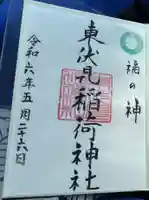 福の神
東伏見稲荷神社
令和六年五月二六日